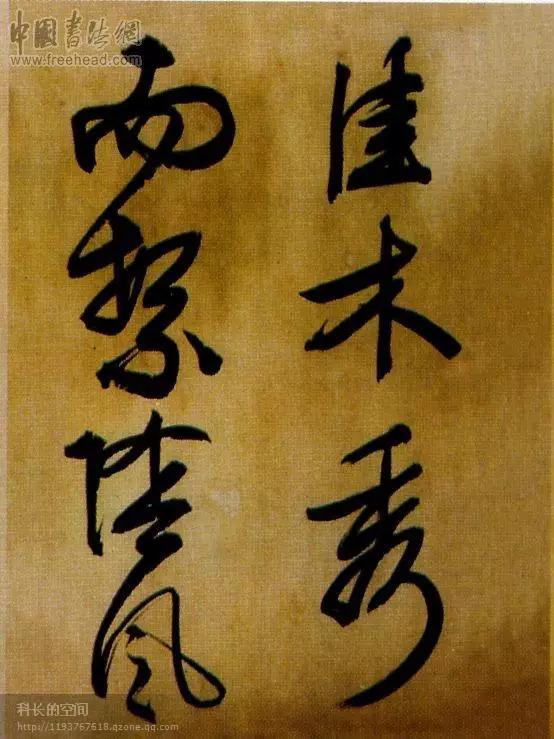 中國書法網
www.freehead.com
佳木秀
而繁陰風
科长的空间
http://1193767618.qzone.qq.com